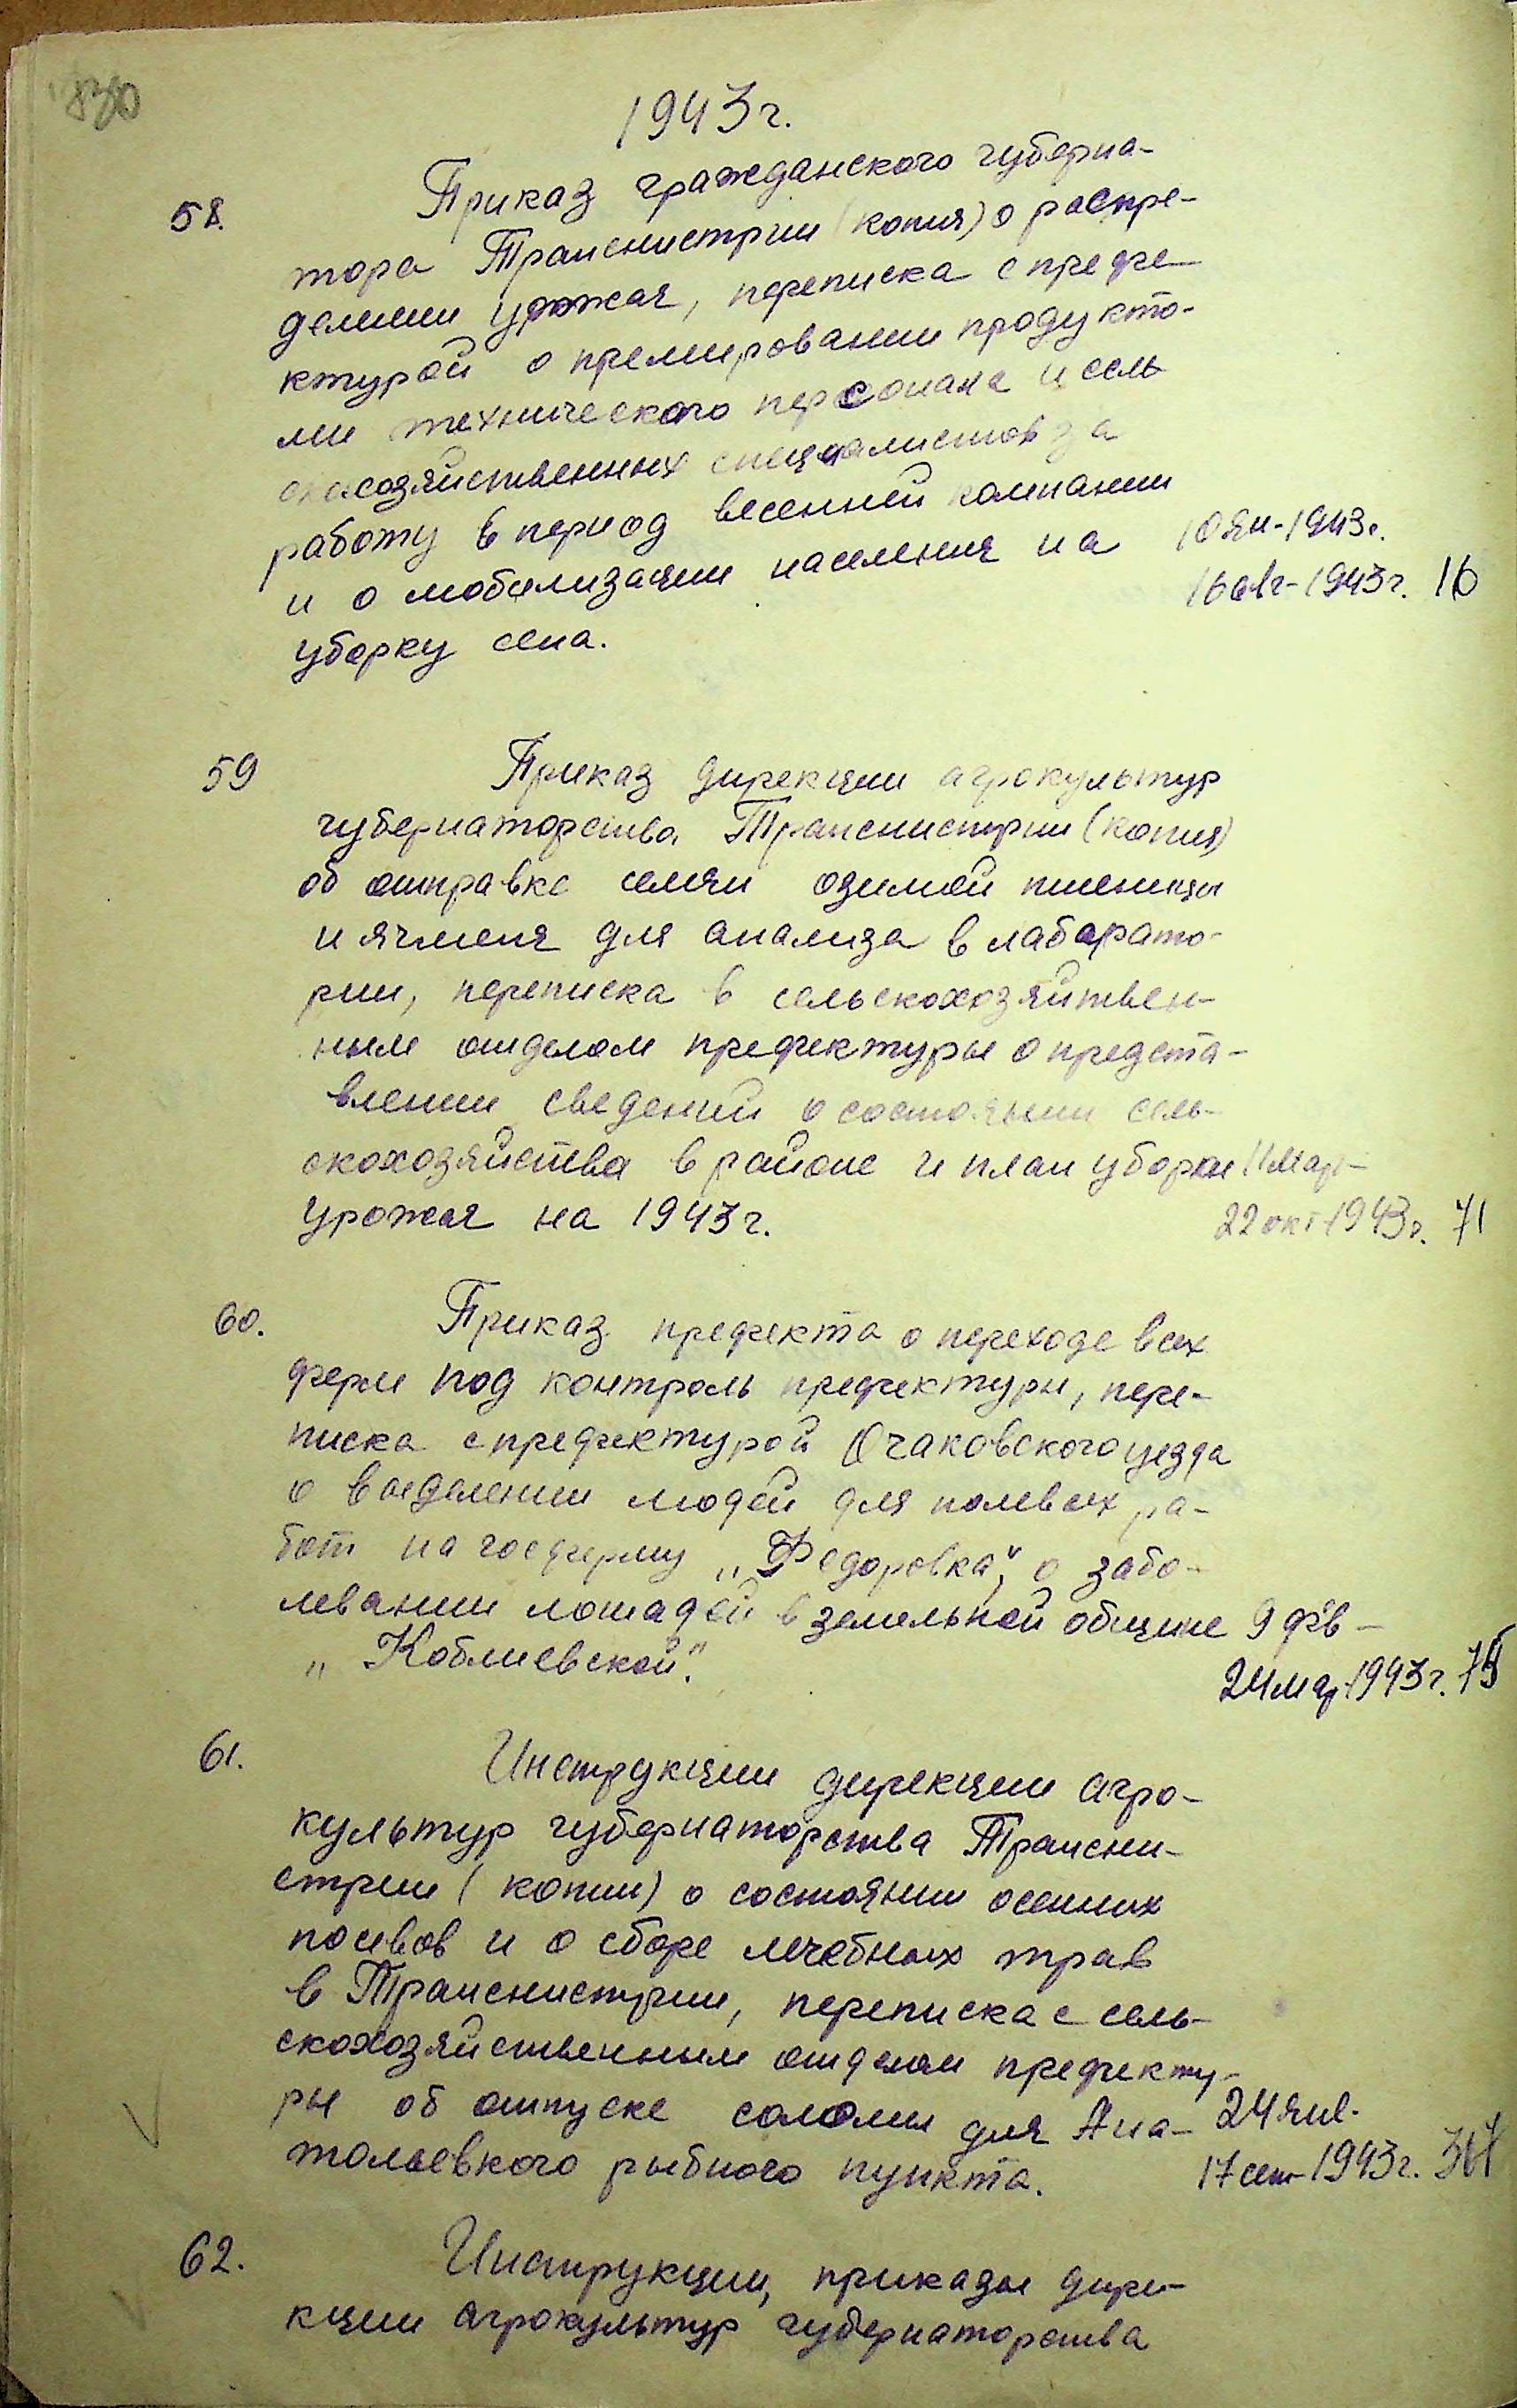 1943г.
58. Приказ гражданского губерна-
тора Транснистрии (копия) о распре-
делении урожая, переписка с префе-
ктурой о премировании продукта-
ми технического персонала и сель
скохозяйственных специалистов за
работу в период весенней кампании
и о мобилизации населения на 10 ян-1943г.
уборку сена. 16 авг-1943г. 16
59 Приказ дирекции агрокультур
губернаторства Транснистрии (копия)
об отправке семян озимой пшеницы
и ячменя для анализа в лаборато-
рии, переписка в сельскохозяйствен-
ным отделом префектуры о предста-
влении сведений о состоянии сель-
скохозяйства в районе и план уборки 11 мар-
урожая на 1943г. 22 окт-1943г. 71
60. Приказ префекта о переходе всех
ферм под контроль префектуры, пере-
писка с префектурой Очаковского уезда
о выделении людей для полевых ра-
бот на госферму „Федоровка", о забо-
левании лошадей в земельной общине 9 фев-
„Коблиевской". 24 мар-1943г.
61. Инструкции дирекции агро-
культур губернаторства Трансни-
стрии (копии) о состоянии осенних
посевов и о сборе лечебных трав
в Транснистрии, переписка с сель-
скохозяйственным отделом префекту-
ры об отпуске соломы для Ана- 24 янв-
тольевкого рыбного пункта. 17 сен-1943г.
62. Инструкции, приказы дире-
кции агрокультур губернаторства